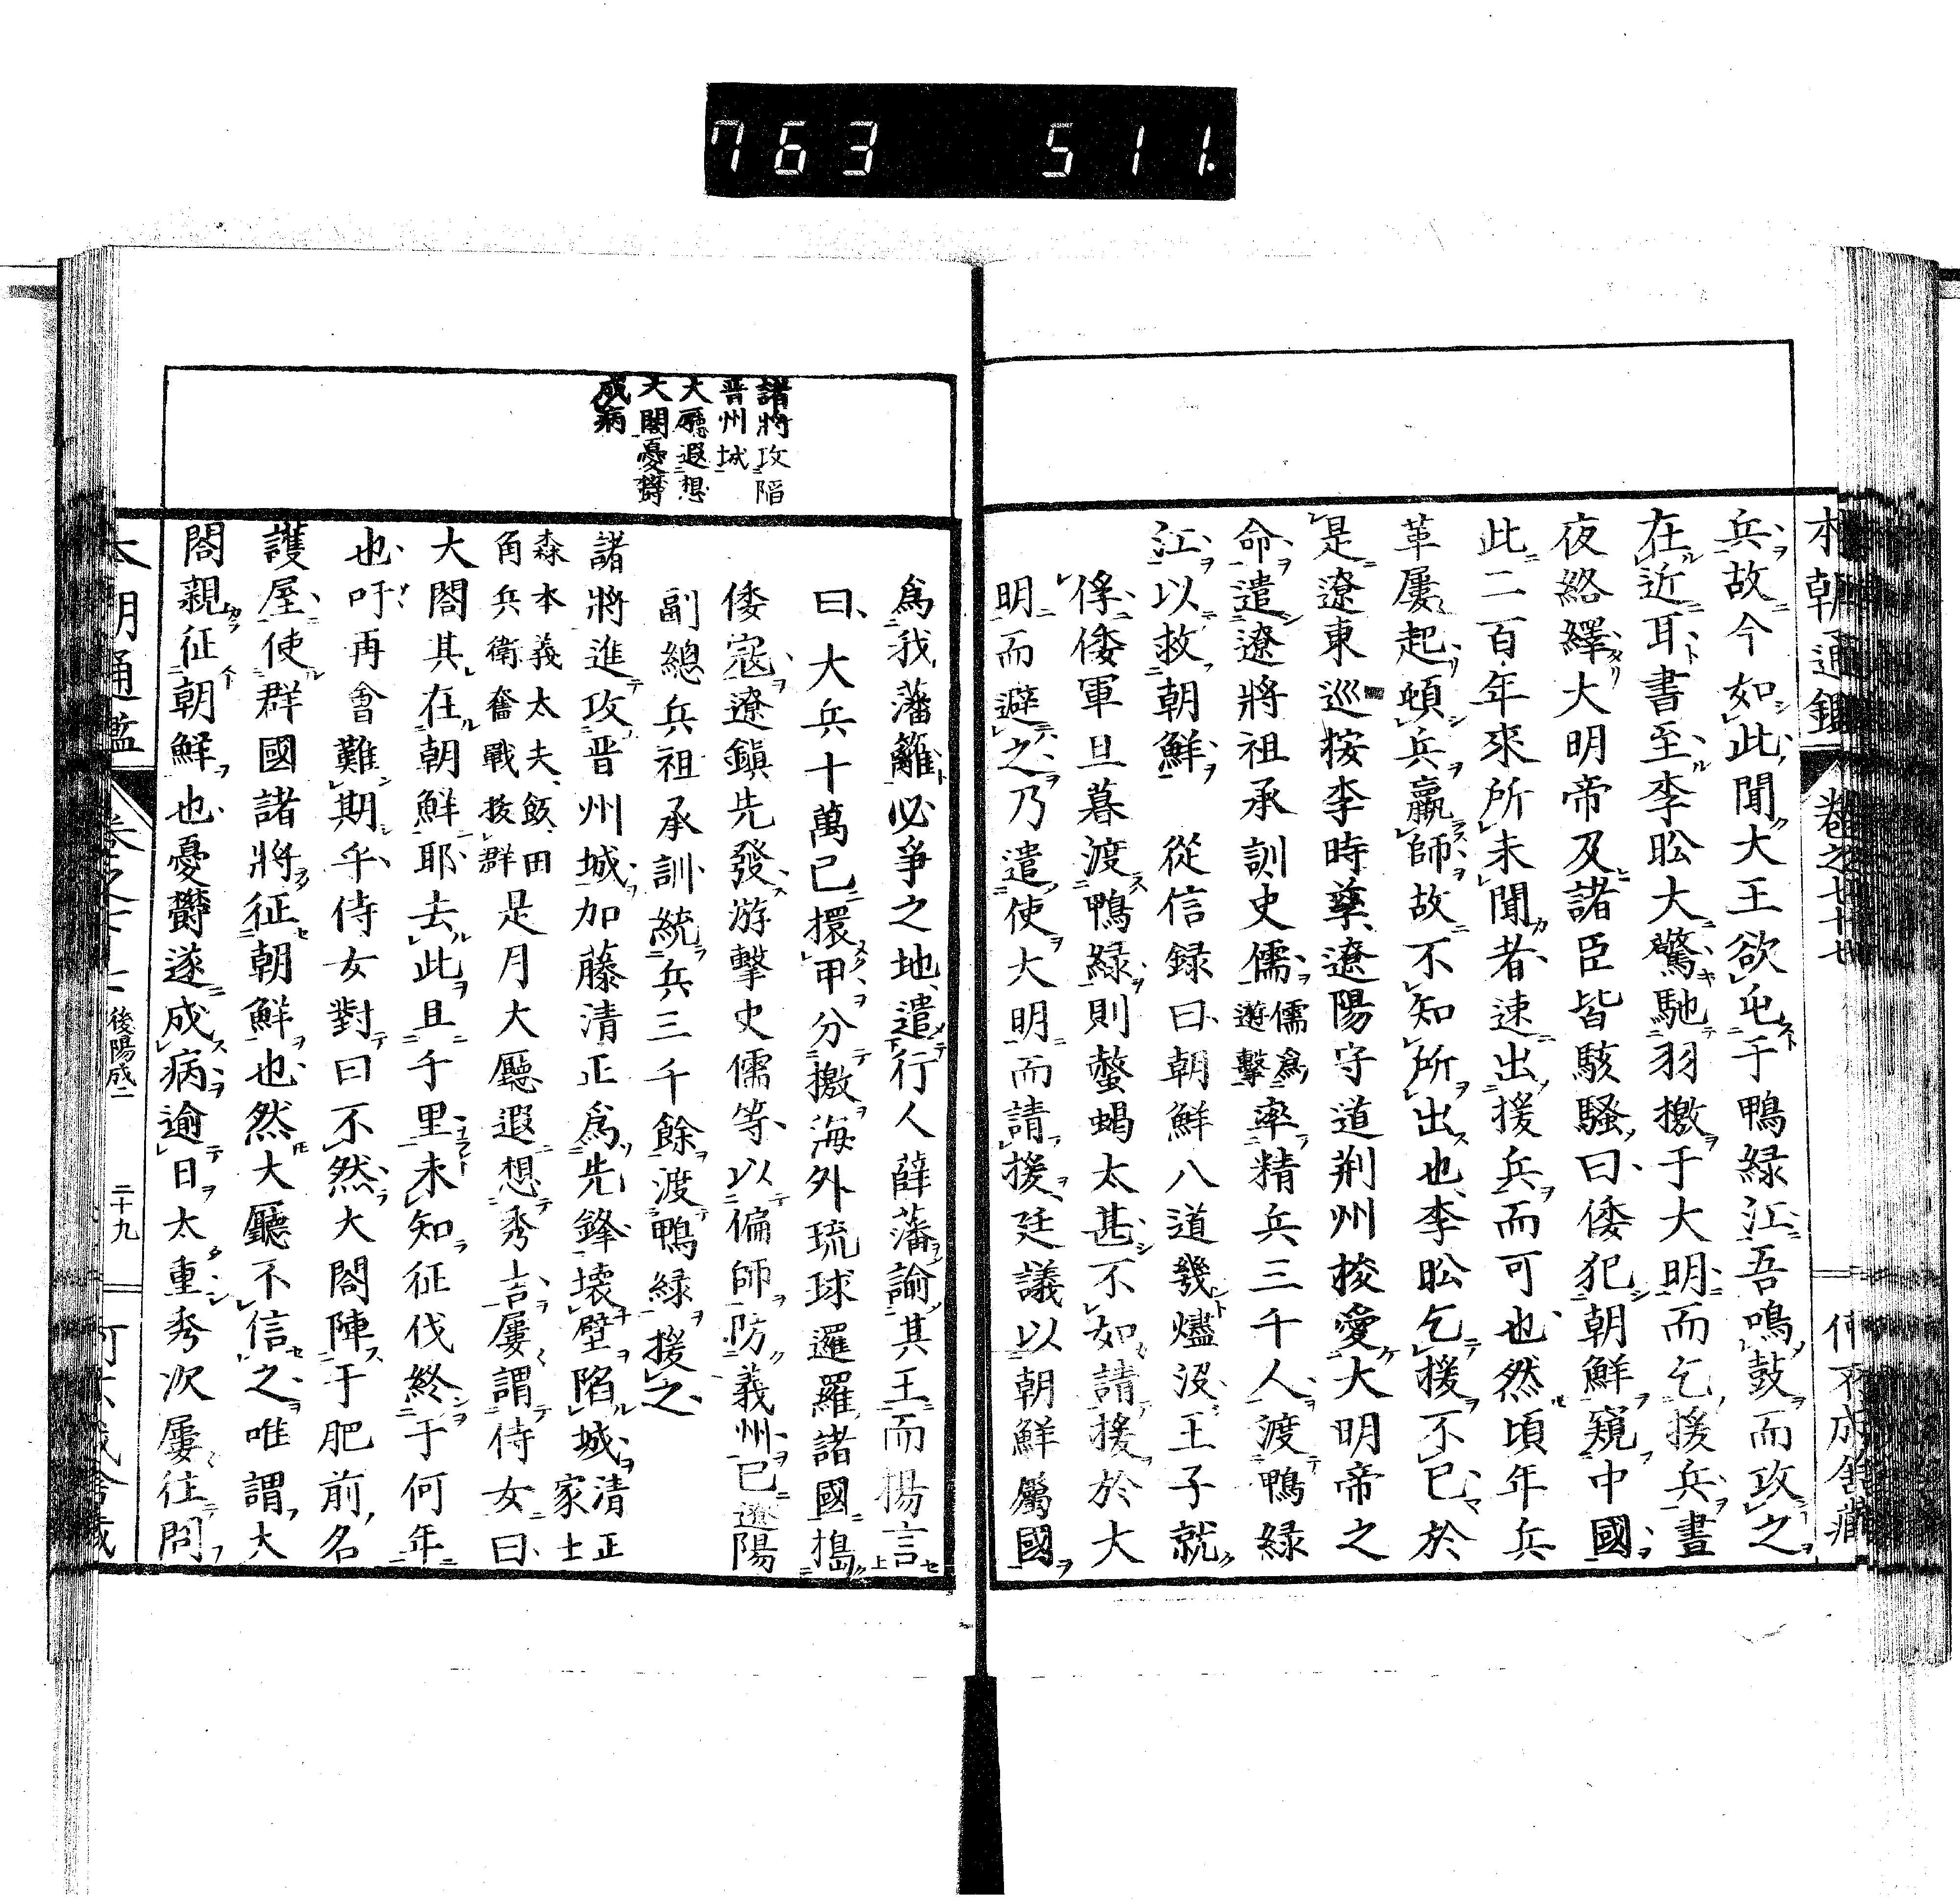 763 511.
本朝通鑑 卷之七十七
兵故今如此聞大王欲屯于鴨綠江吾鳴鼓而攻之
在近耳書至李昖大驚馳羽檄于大明而乞援兵晝
夜絡繹大明帝及諸臣皆駭騷曰倭犯朝鮮窺中國
此二百年來所未聞者速出援兵而可也然頃年兵
革屢起頓兵羸師故不知所出也李昖乞援不已於
是遼東巡按李時孳遼陽守道荊州捘愛大明帝之
命遣遼將祖承訓史儒儒爲遊擊率精兵三千人渡鴨綠
江以救朝鮮 從信録曰朝鮮八道幾燼沒王子就
俘倭軍旦暮渡鴨綠則螫蝎太甚不如請援於大
明而避之乃遣使大明而請援廷議以朝鮮屬國
諸將攻陷
晋州城
大廳遐想
大閤憂欝
成病
爲我藩籬必爭之地遣行人薛藩諭其王而揚言
曰大兵十萬已擐甲分檄海外琉球暹羅諸國搗
倭寇遼鎭先發游擊史儒等以偏師防義州已遼陽
副總兵祖承訓統兵三千餘渡鴨綠援之
諸將進攻晋州城加藤清正爲先鋒壊壁陷城清正家士
森本義太夫飯田角兵衛奮戰拔群是月大廳遐想秀吉屢謂侍女曰
大閤其在朝鮮耶去此且千里未知征伐終于何年
也吁再會難期乎侍女對曰不然大閤陣于肥前名
護屋使群國諸將征朝鮮也然大廳不信之唯謂大
閤親征朝鮮也憂欝遂成病逾日太重秀次屢往問
本朝通鑑 後陽成一 二十九